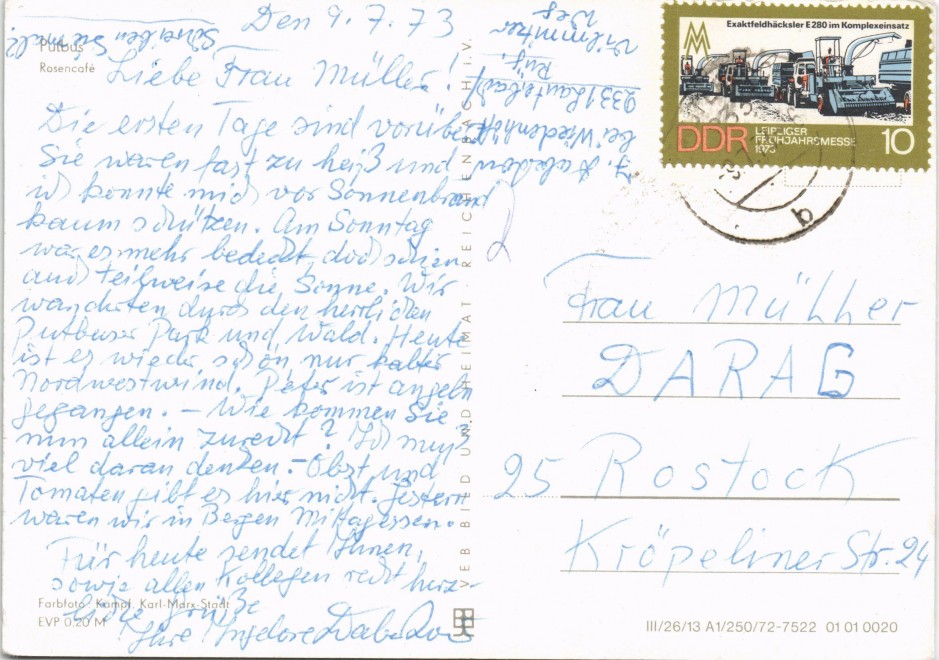 Den 9.7.73
Putbus
Rosencafé
Liebe Frau Müller!
Die ersten Tage sind vorüber.
Sie waren fast zu heiß und
ich konnte mich vor Sonnenbrand
kaum schützen. Am Sonntag
war es mehr bedeckt doch schien
auch teilweise die Sonne. Wir
wanderten durch den herrlichen
Putbuser Park und Wald. Heute
ist es wieder schön, nur kalter
Nordwestwind. Peter ist angeln
gegangen. – Wie kommen Sie
nun allein zurecht? Ich muß
viel daran denken. – Obst und
Tomaten gibt es hier nicht. Gestern
waren wir in Bergen Mittagessen.
Für heute sendet Ihnen,
sowie allen Kollegen recht herz-
liche Grüße
Ihre Ingelore
Farbfoto: Kampf, Karl-Marx-Stadt
EVP 0.20 M
Schreiben Sie mal?
bei
2331 Lauterbach
Rüg.
Vilmnitzer
Weg
VEB BILD UND HEIMAT · REICHENBACH I. V.
Exaktfeldhäcksler E 280 im Komplexeinsatz
MM
DDR
LEIPZIGER
FRÜHJAHRSMESSE
1973
10
b
Frau Mühller
DARAG
25 Rostock
Kröpeliner Str. 24
III/26/13 A1/250/72-7522 01 01 0020